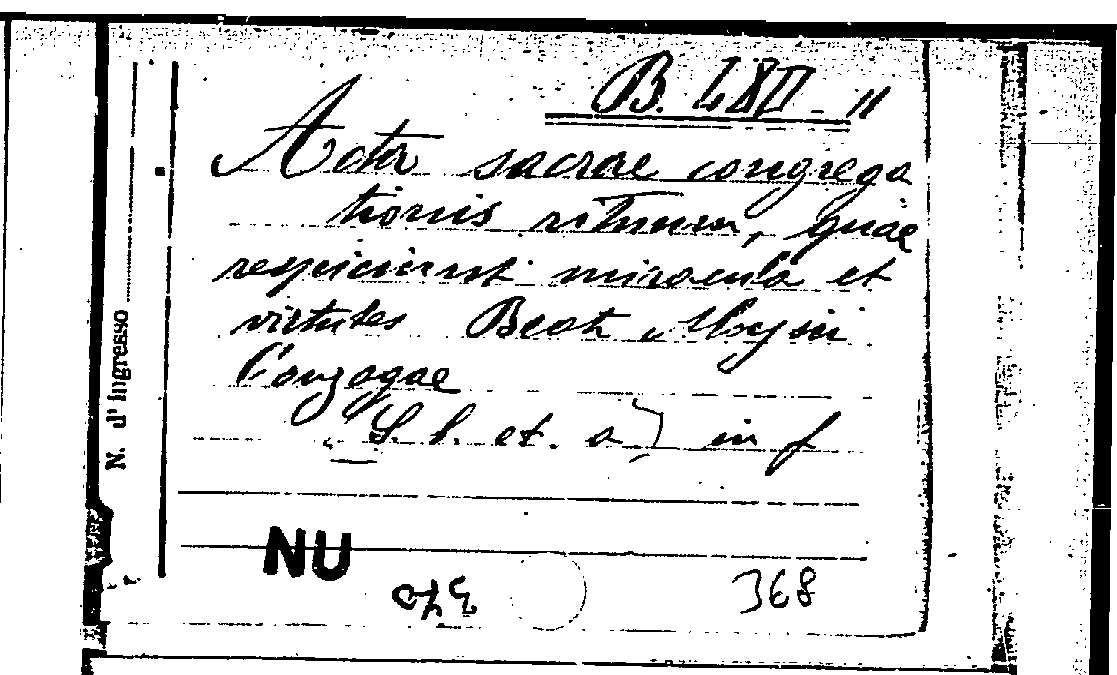 B. 480 - 11
Acta sacrae congrega
tionis rituum, quae
respiciunt miracula et
virtutes Beati Aloysii
Gonzagae
(S. l. et. a) in f
N. d'Ingresso
NU
368